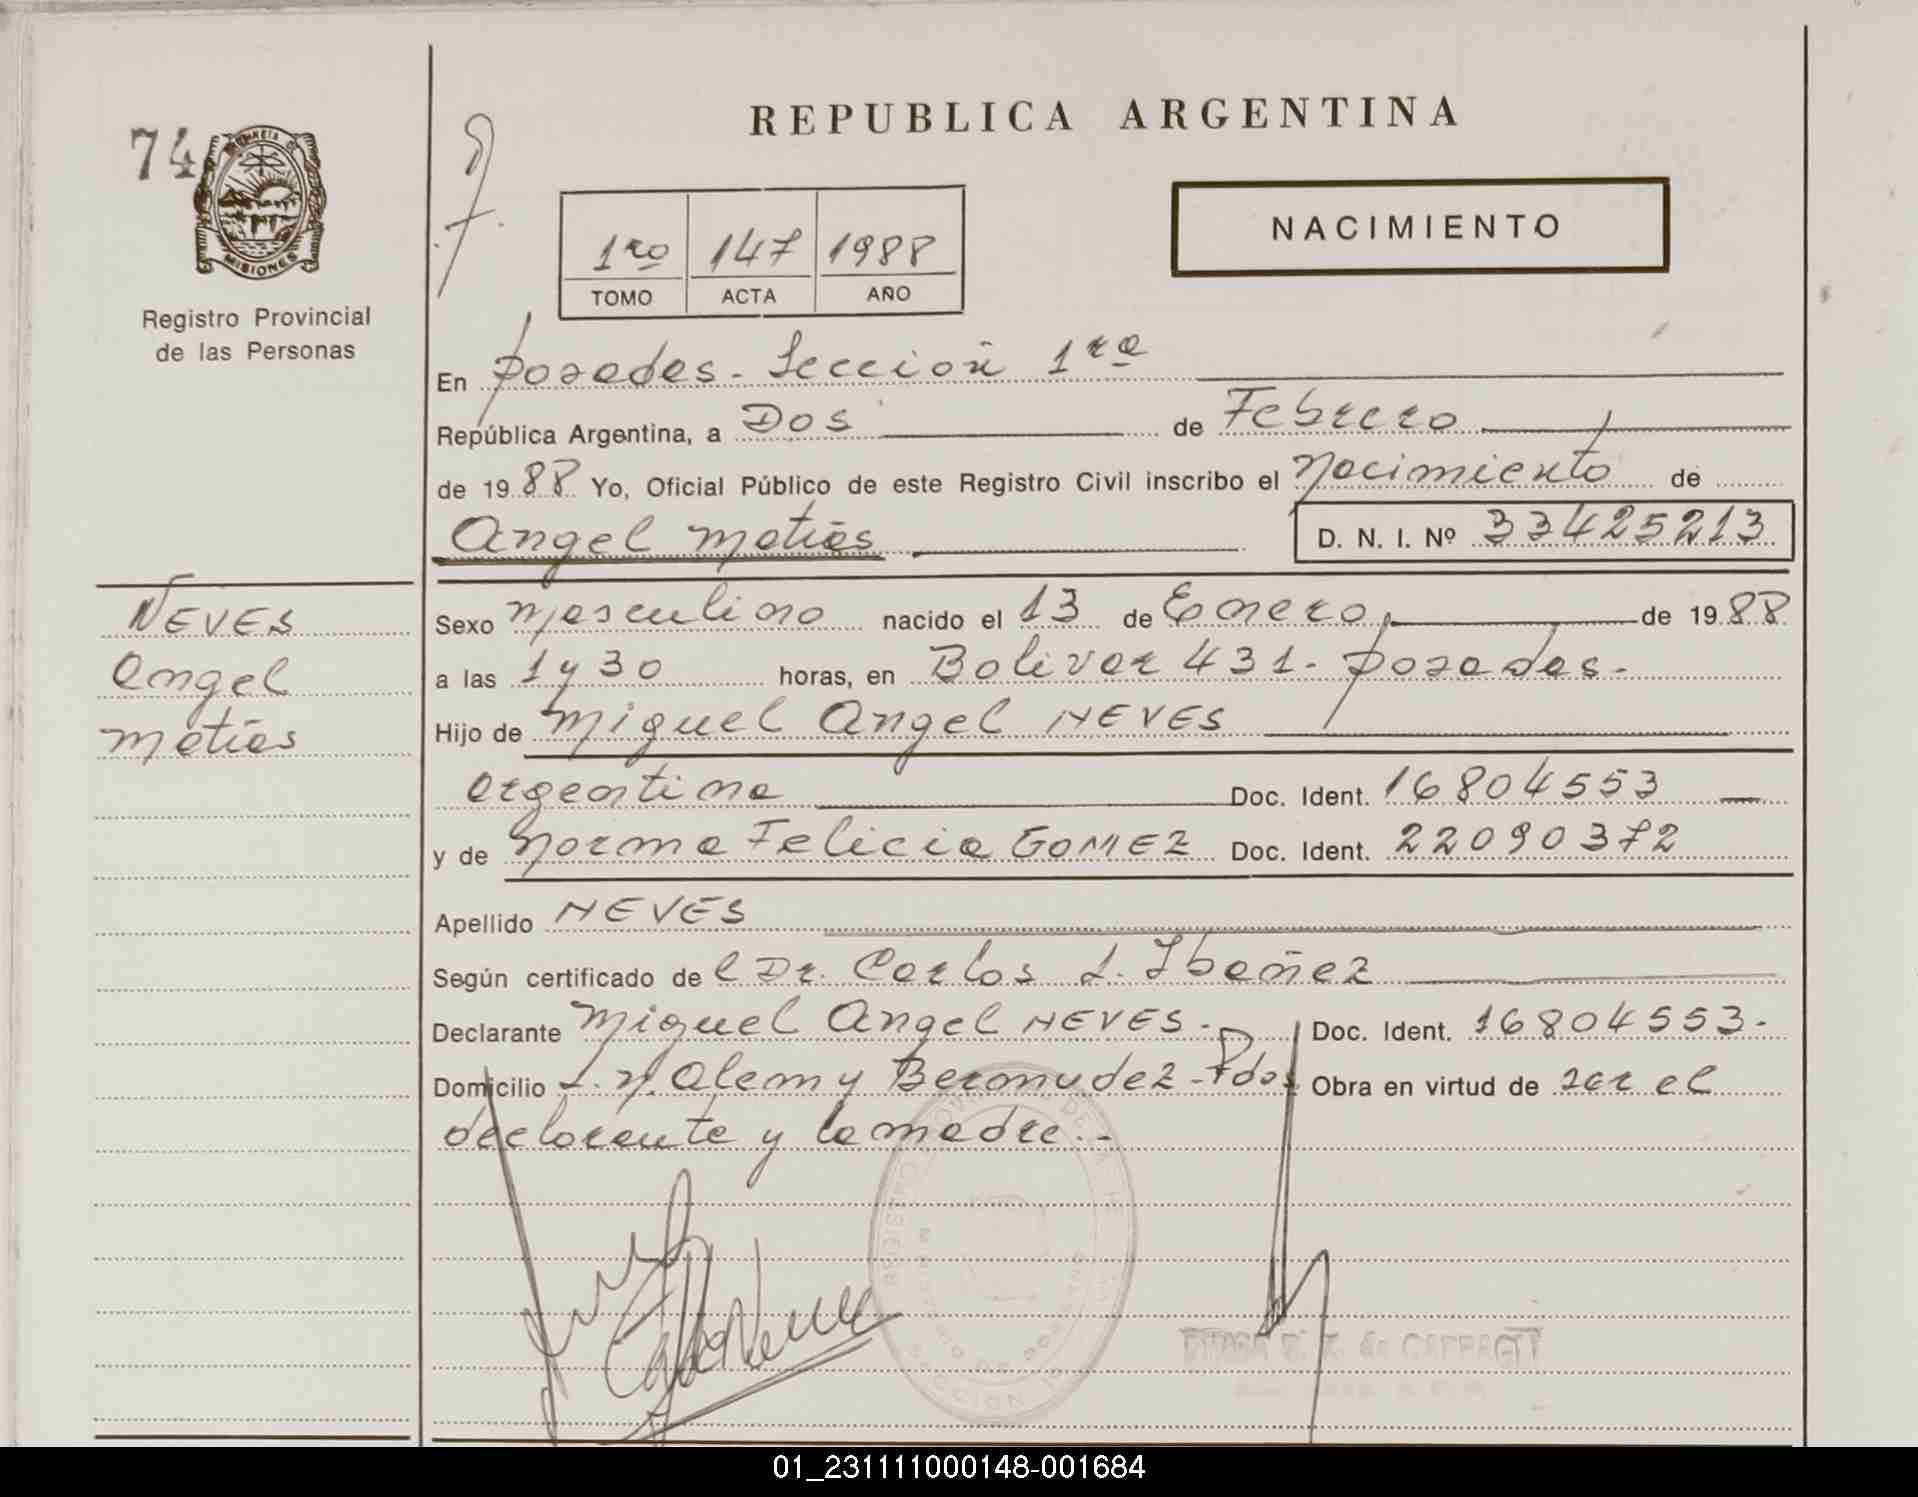 REPUBLICA ARGENTINA
74
MISIONES
Registro Provincial
de las Personas
1ro 147 1988
TOMO ACTA AÑO
NACIMIENTO
En Posadas - Sección 1ra
República Argentina, a Dos de Febrero
de 1988 Yo, Oficial Público de este Registro Civil inscribo el Nacimiento de
Angel Matías D. N. I. Nº 33425213
NEVES
Angel
Matías
Sexo Masculino nacido el 13 de Enero de 1988
a las 1 y 30 horas, en Bolivar 431 - Posadas -
Hijo de Miguel Angel NEVES
argentina Doc. Ident. 16804553
y de Norma Felicia GOMEZ Doc. Ident. 22090372
Apellido NEVES
Según certificado de l Dr. Carlos L. Ibañez
Declarante Miguel Angel NEVES - Doc. Ident. 16804553 -
Domicilio L. N. Alem y Bermudez - Pdas Obra en virtud de ser el
declarante y la madre. -
01_231111000148-001684